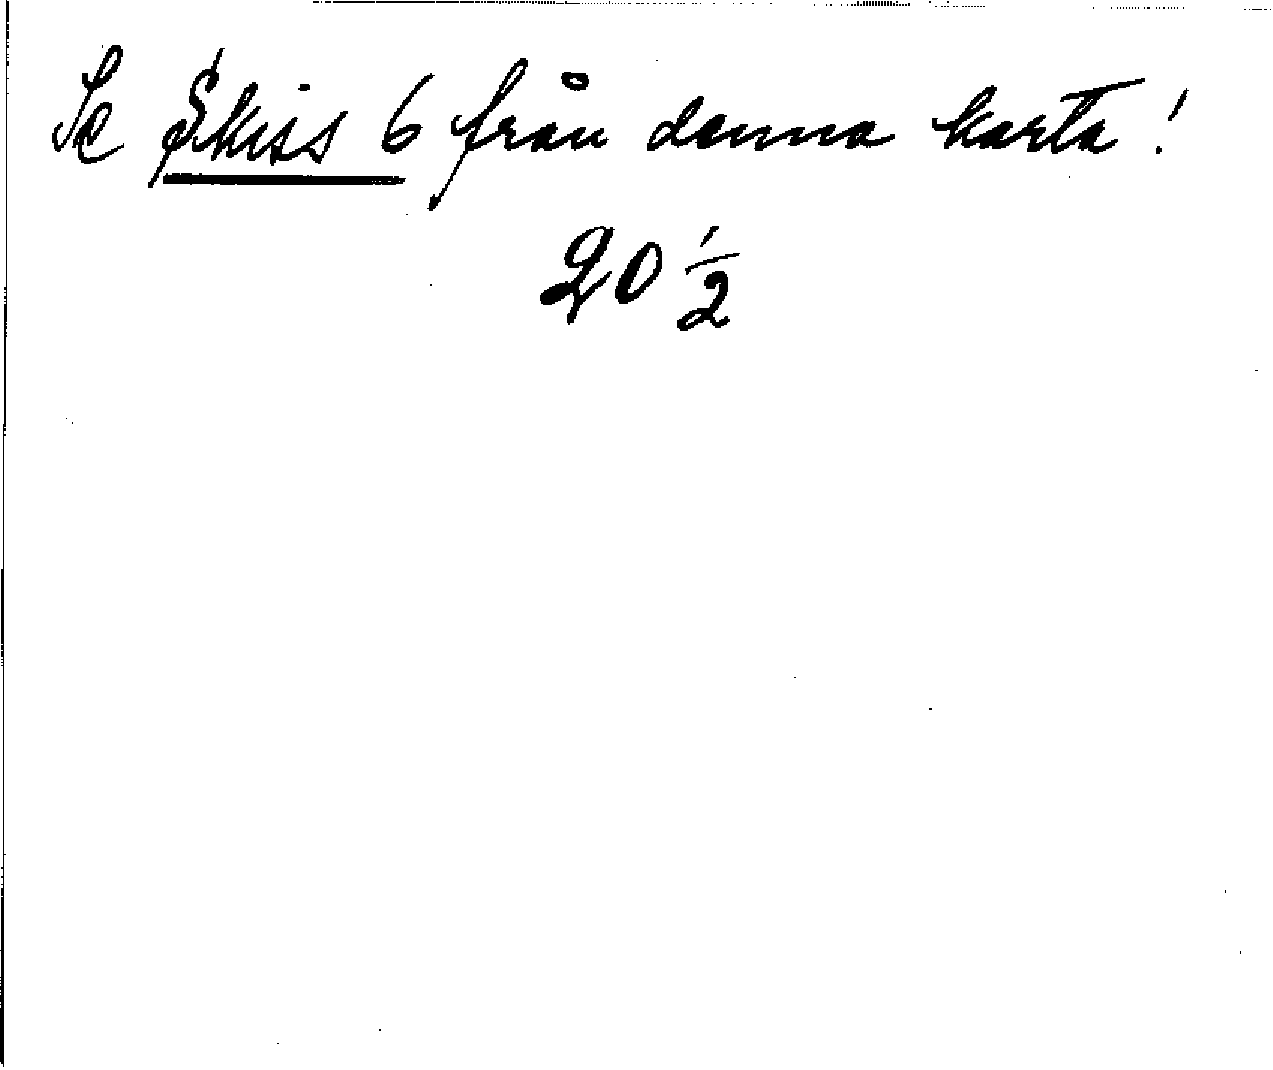 Se Skiss 6 från denna karta!
20 1/2